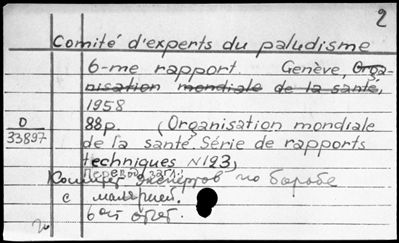 2
Comité d'experts du paludisme
6-me rapport. Genève, Orga-
nisation mondiale de la santé,
1958
0
33897
88p. (Organisation mondiale
de la santé. Série de rapports
techniques N123)
Перевод загл.:
Комитет экспертов по борьбе
с малярией.
6ой отчет.